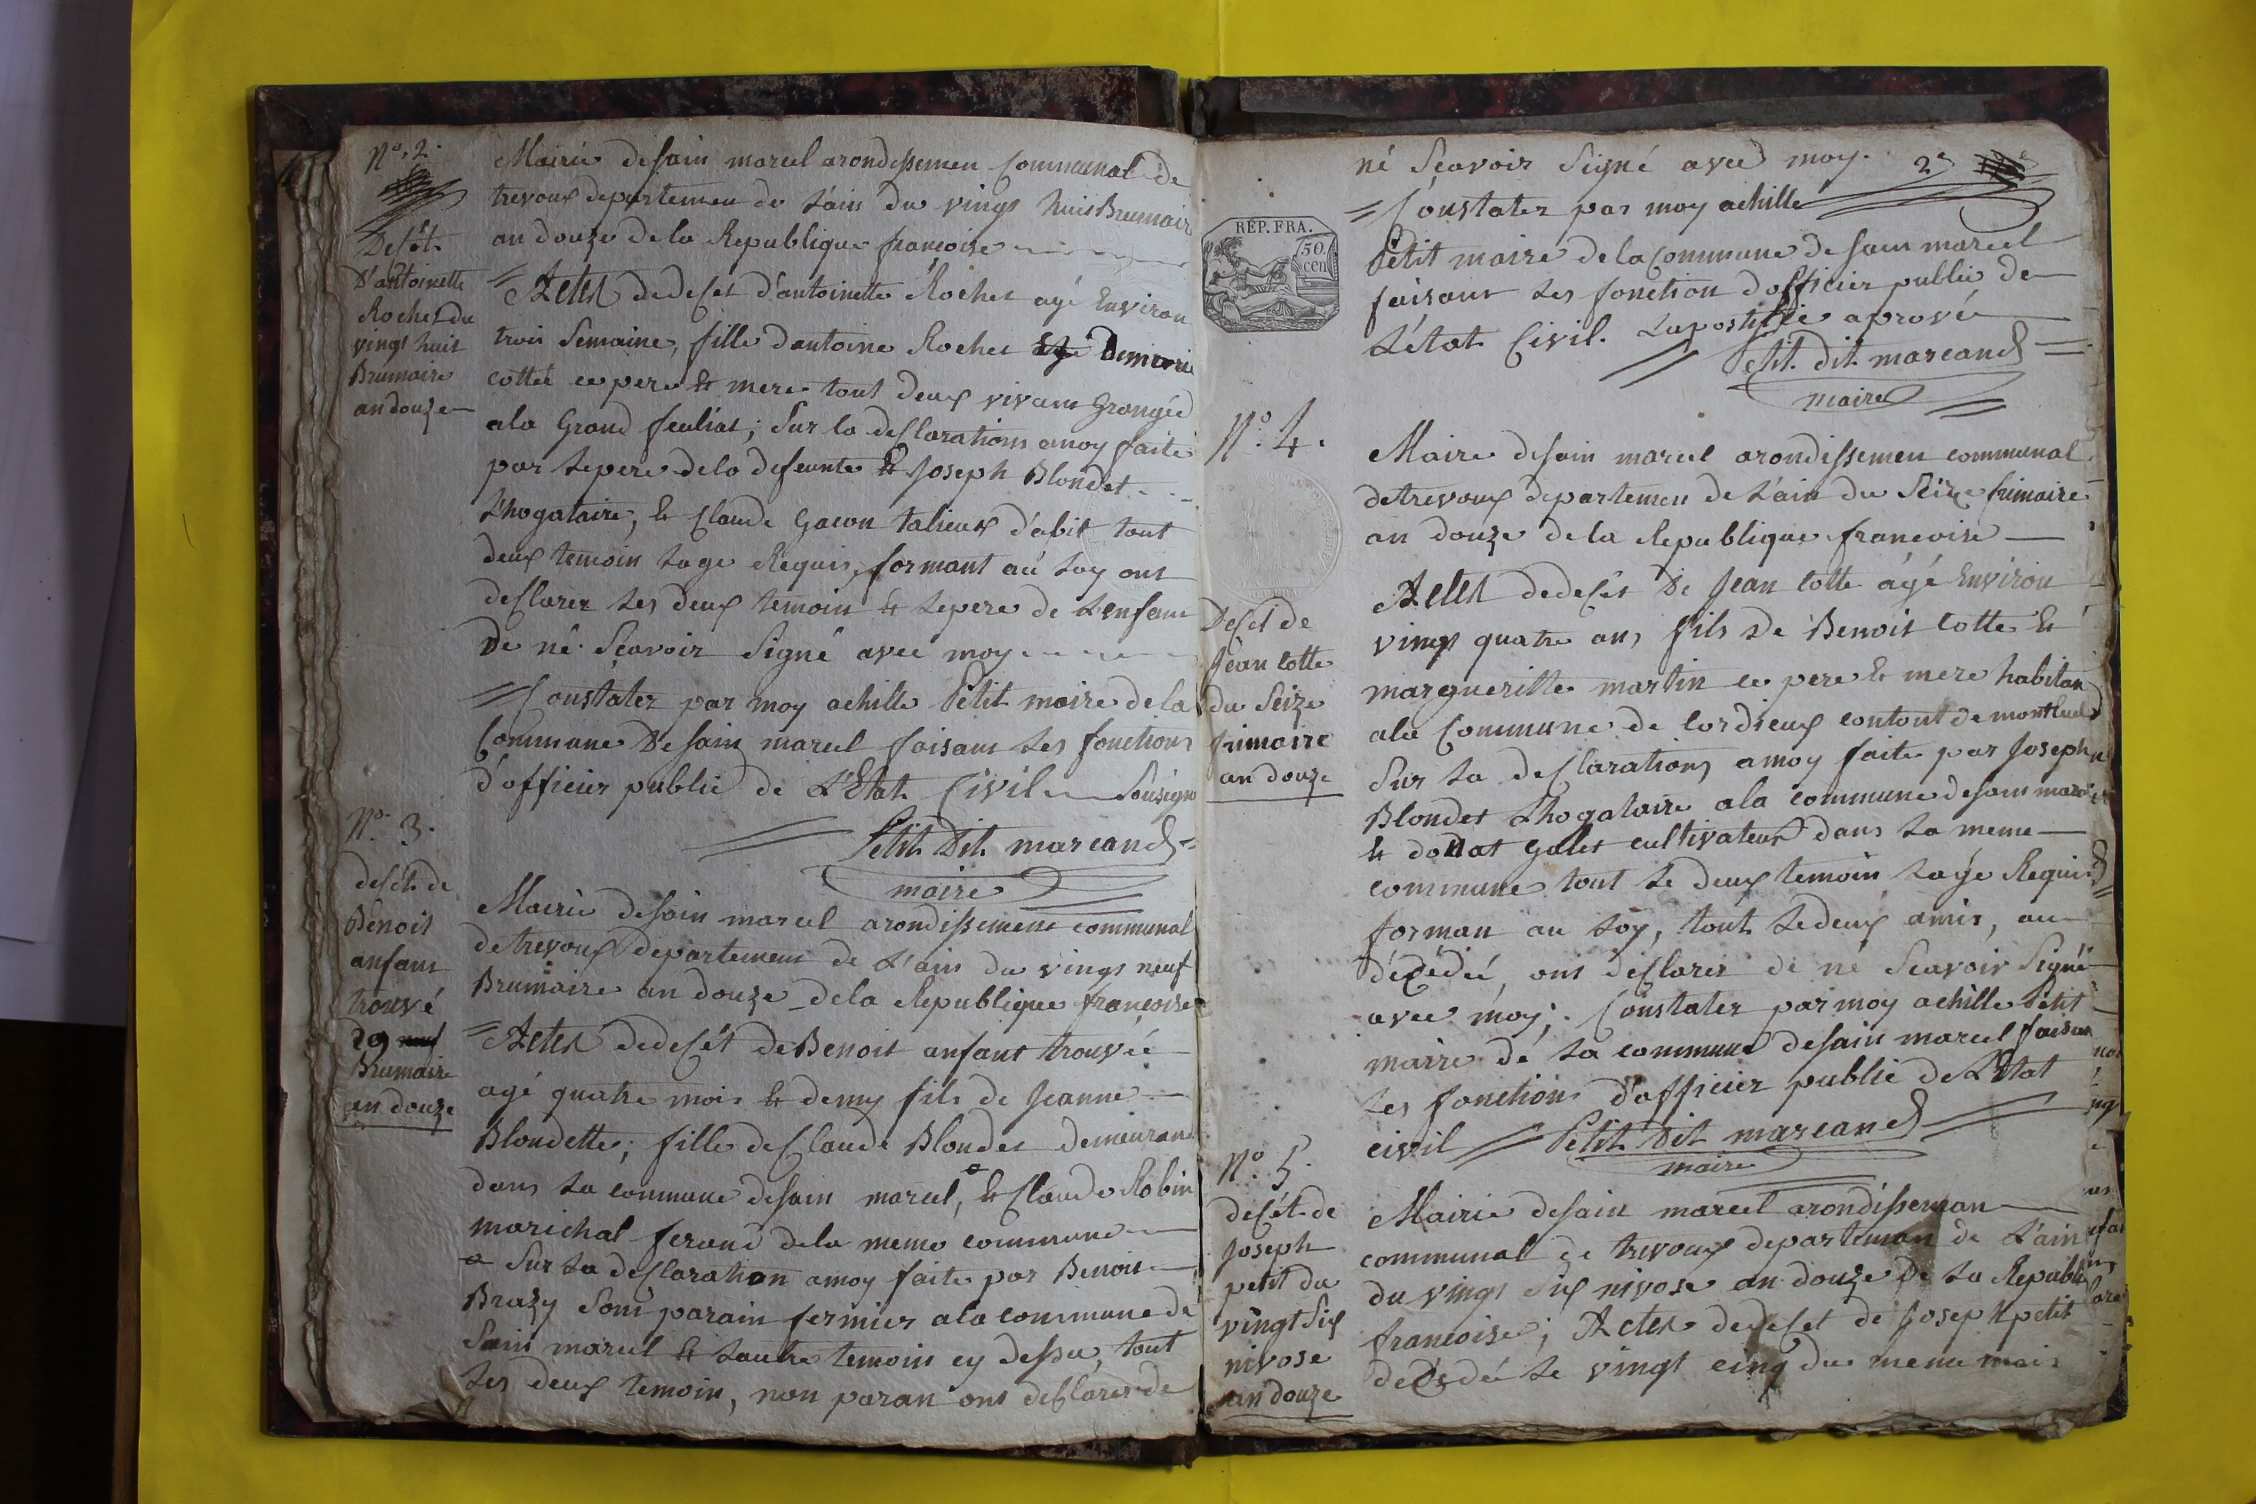 N° 2.
Desét
D'antoinette
Rochet du
vingt huit
Brumaire
an douze
Mairie desain marcel arondissemen Communal de
trevoux departemen de L'ain du vingt huit Brumair
an douze de la Republique francoise
Actes dedeset d'antoinette Rochet agé Environ
trois Semaine, fille dantoine Rochet
cotte ce pere et mere tout deux vivant Grangé
ala Grand feuliat; Sur la desclarations amoy faite
par Lepere dela defeunte et Joseph Blondet
Lhogataire, et Claude Gacon talieur d'abit tout
deux temoin Lage Requis, formant aú Loy ont
desclarer Les deux temoin et Lepere de Lenfant
De né Sçavoir Signé avec moy
Constater par moy achille Petit maire de la
Commune De sain marcel faisant Les fonctions
d'officier public de L'Etat Civil Sousigné
Petit Dit marcand
maire
N° 3.
desét de
Benoit
anfant
trouvé
29
Brumaire
an douze
Mairie desain marcel arondissement communal
detrevoux departement de L'ain du vingt neuf
Brumaire an douze dela Republique francoise
Actes dedesét de Benoit anfant trouvée
agé quatre mois et demy fils de Jeanne
Blondette; fille de Claude Blondet demeurant
dans La commune desain marcel, et Claude Robin
marichal ferand dela meme commune
Sur La desclaration amoy faite par Benoit
Brazy Son parain fermier ala commune de
Sain marcel et Lautre temoin cy dessu, tout
Les deux temoin, non paran ont desclarer de
né Sçavoir Signé avec moy.
2e
Constater par moy achille
Petit maire dela Commune de sain marcel
faisant Les fonction dofficier public de
L'état Civil. Lapostille aprové
Petit dit marcand
maire
REP. FRA.
50
cen
N° 4.
Deset de
Jean cotte
du Seize
frimaire
an douze
Maire desain marcel arondissemen communal
detrevoux departemen de L'ain du Seize frimaire
an douze de la Republique francoise
Actes dedesét De Jean cotte âgé Environ
vingt quatre ans fils De Benoit cotte et
margueritte martin ce pere et mere habitan
ala Commune de Cordieux contont de montluel
Sur La desclarations amoy faite par Joseph
Blondet Lhogataire ala commune desain marcel
et donat Galet cultivateur dans La meme
commune tout Le deux temoin Lage Requis
forman au Loy, tout Ledeux amis, au
décédé, ont desclarer de né Scavoir Signé
avec moy; Constater par moy achille Petit
maire dé La commune desain marcel faisan
Les fonctions d'officier public de L'Etat
civil Petit Dit marcand
maire
N° 5.
desét de
Joseph
petit du
vingt Six
nivose
an douze
Mairie desain marcel arondisseman
communal de trevoux departeman de L'ain
du vingt Six nivose an douze de La Republi
francoise; Actes dedeset de Joseph petit
decédé Le vingt cinq du meme mois